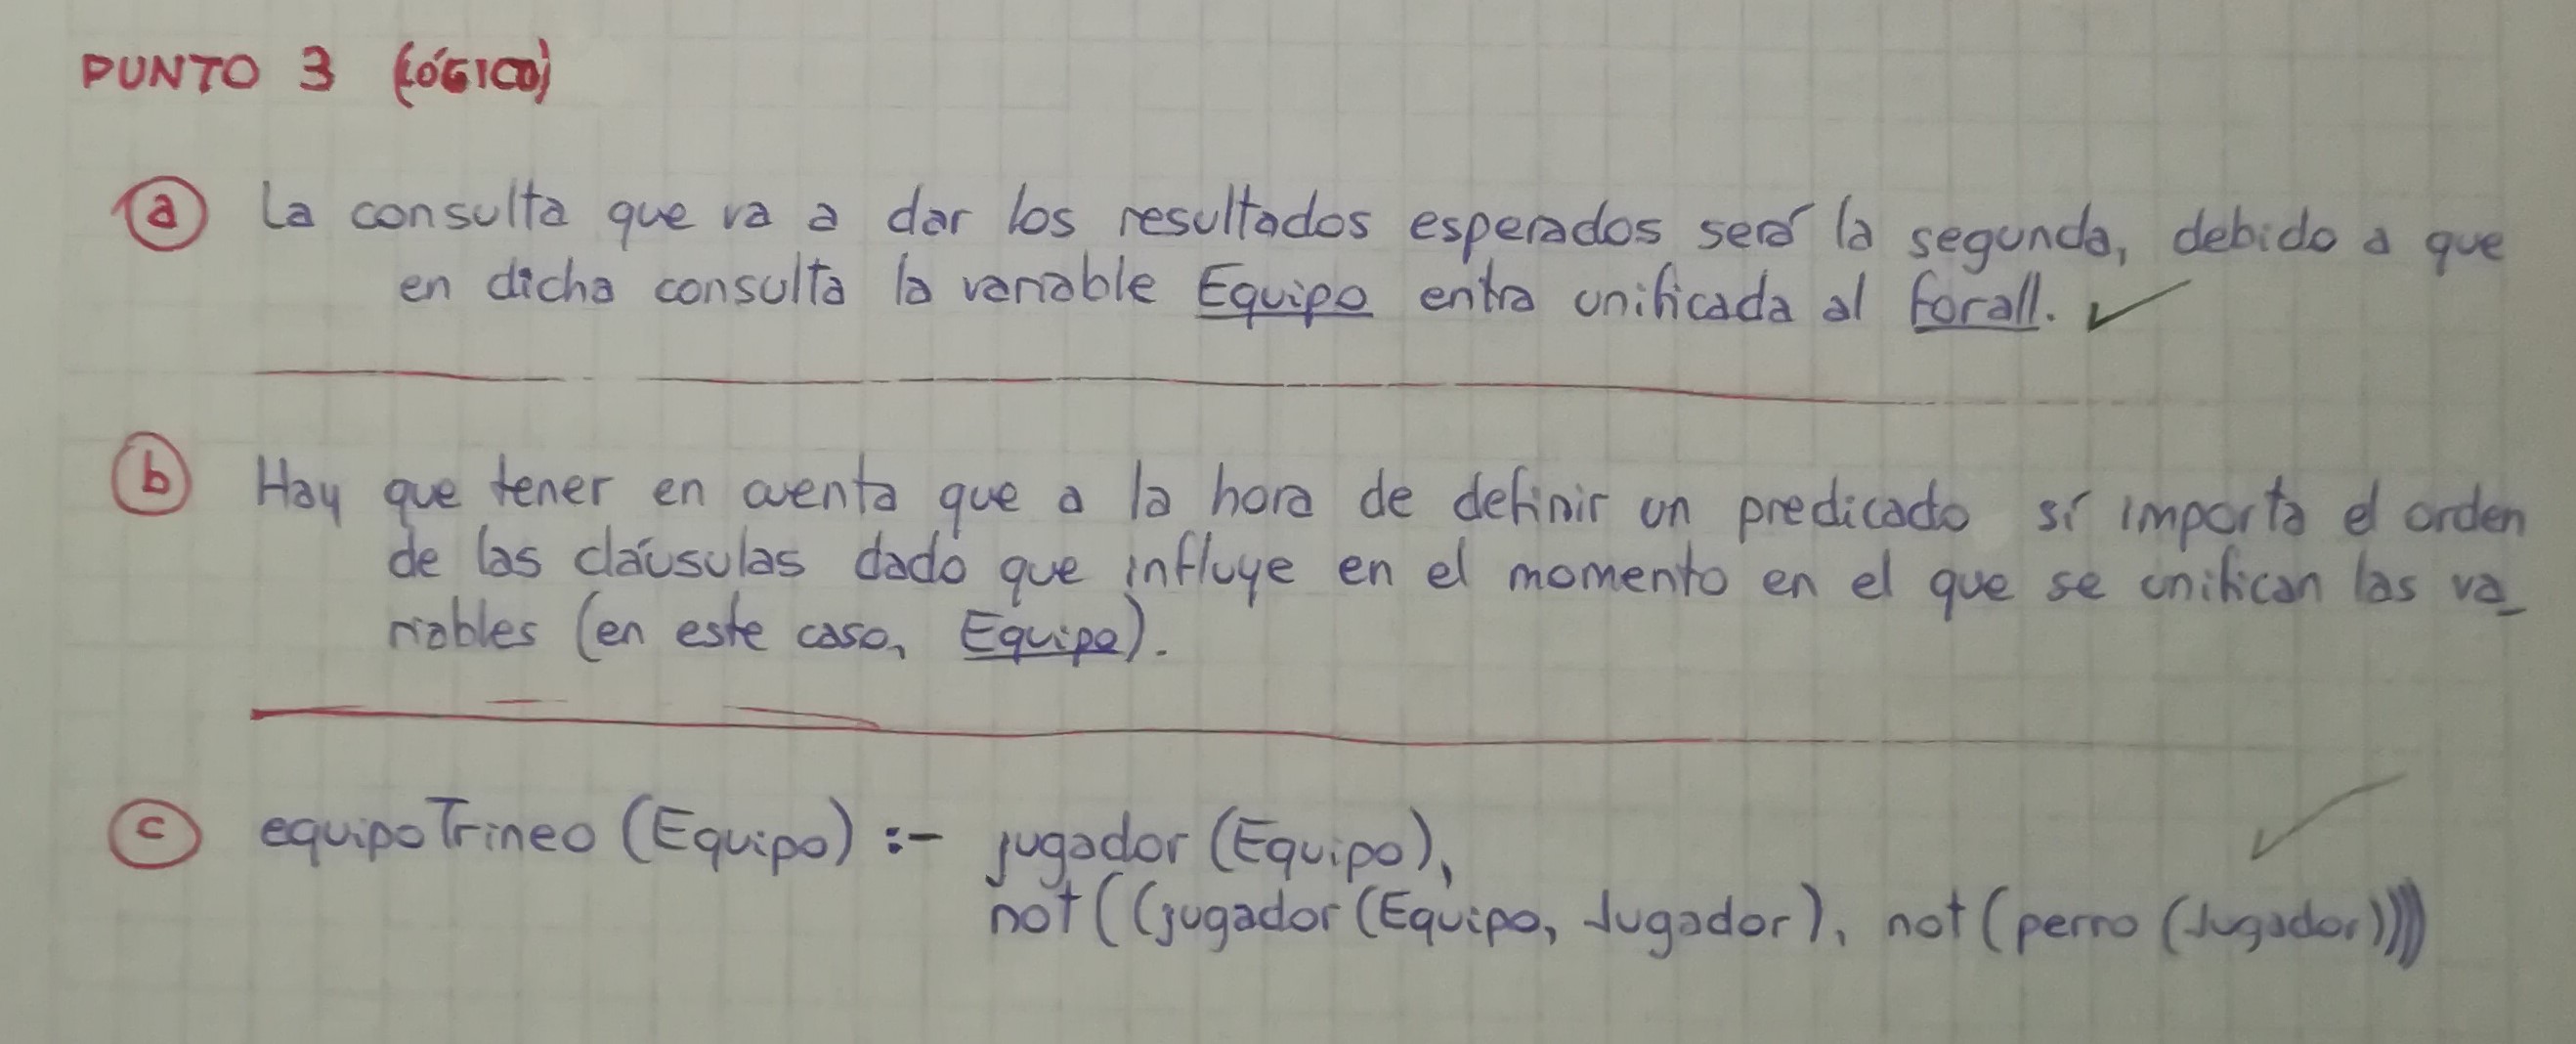 PUNTO 3 (LÓGICO)
a La consulta que va a dar los resultados esperados será la segunda, debido a que
en dicha consulta la variable Equipo entra unificada al forall. ✓
b Hay que tener en cuenta que a la hora de definir un predicado sí importa el orden
de las cláusulas dado que influye en el momento en el que se unifican las va_
riables (en este caso, Equipo).
c equipoTrineo (Equipo) :- jugador (Equipo),
not((jugador (Equipo, Jugador), not (perro (Jugador))))